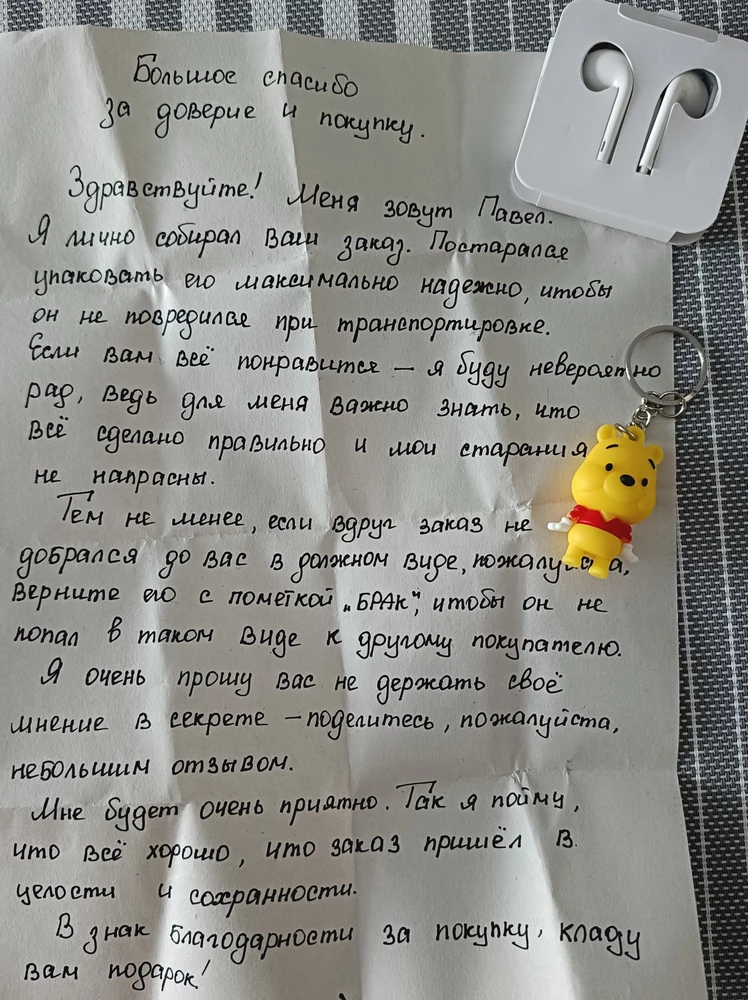 Большое спасибо
за доверие и покупку.
Здравствуйте! Меня зовут Павел.
Я лично собирал Ваш заказ. Постарался
упаковать его максимально надежно, чтобы
он не повредился при транспортировке.
Если вам всё понравится – я буду невероятно
рад, ведь для меня важно знать, что
всё сделано правильно и мои старания
не напрасны.
Тем не менее, если вдруг заказ не
добрался до вас в должном виде, пожалуйста,
верните его с пометкой „БРАК", чтобы он не
попал в таком виде к другому покупателю.
Я очень прошу вас не держать своё
мнение в секрете – поделитесь, пожалуйста,
небольшим отзывом.
Мне будет очень приятно. Так я пойму,
что всё хорошо, что заказ пришёл в
целости и сохранности.
В знак благодарности за покупку, кладу
вам подарок!